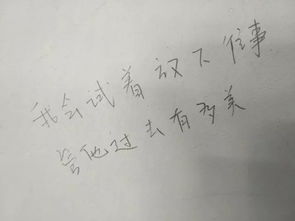 我会试着放下往事
管他过去有多美